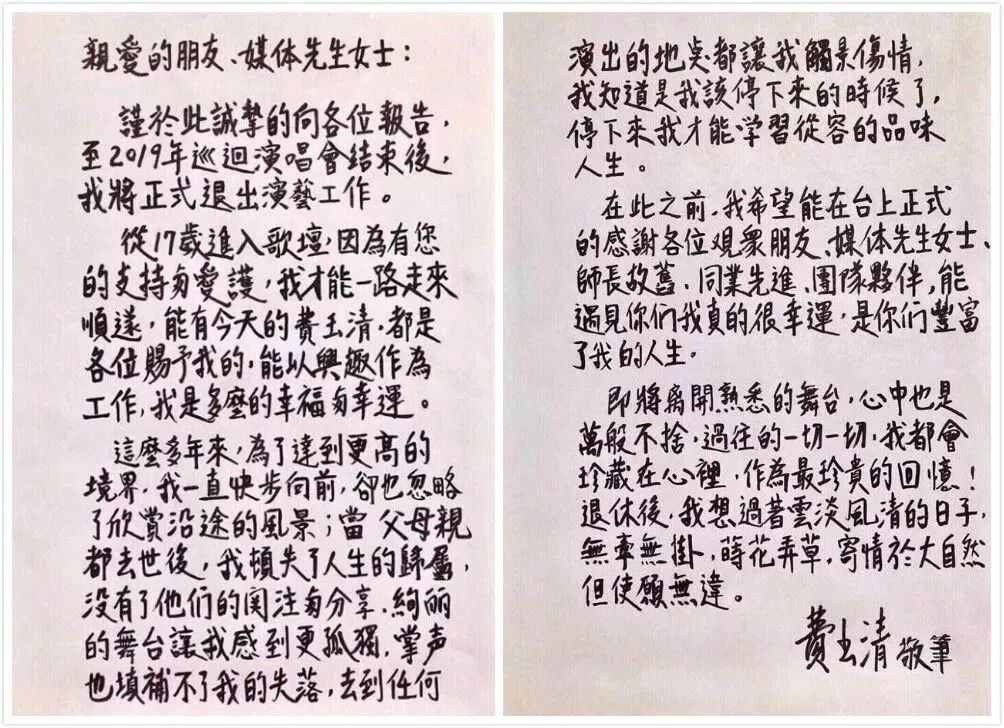 親愛的朋友、媒体先生女士：
謹於此誠摯的向各位報告，
至2019年巡迴演唱會結束後，
我將正式退出演藝工作。
從17歲進入歌壇，因為有您
的支持與愛護，我才能一路走來
順遂，能有今天的費玉清，都是
各位賜予我的，能以興趣作為
工作，我是多麼的幸福與幸運。
這麼多年來，為了達到更高的
境界，我一直快步向前，卻也忽略
了欣賞沿途的風景；當父母親
都去世後，我頓失了人生的歸屬，
沒有了他們的関注與分享，絢丽
的舞台讓我感到更孤獨，掌声
也填補不了我的失落，去到任何
演出的地点都讓我觸景傷情，
我知道是我該停下來的時候了，
停下來我才能学習從容的品味
人生。
在此之前，我希望能在台上正式
的感謝各位观眾朋友、媒体先生女士、
師長故舊、同業先進、團隊夥伴，能
遇見你们我真的很幸運，是你们豐富
了我的人生。
即將离開熟悉的舞台，心中也是
萬般不捨，過往的一切一切，我都會
珍藏在心裡，作為最珍貴的回憶！
退休後，我想過著雲淡風清的日子，
無牽無掛，蒔花弄草，寄情於大自然
但使願無違。
費玉清敬筆